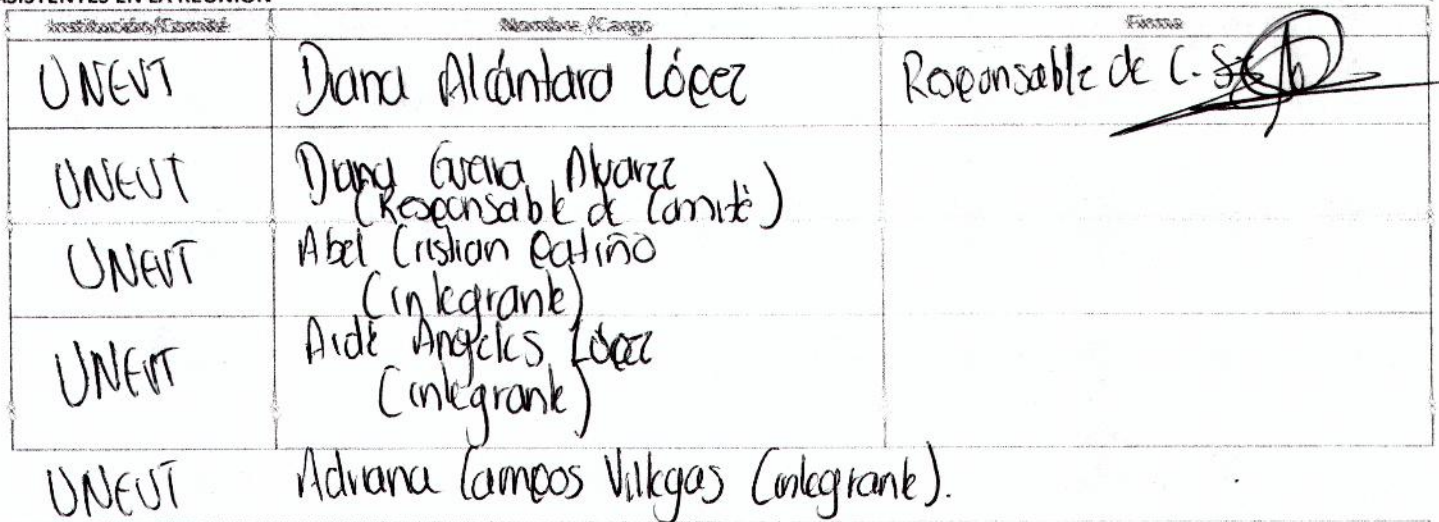 ASISTENTES EN LA REUNIÓN
Institución/Comité Nombre /Cargo Firma
UNEVT Diana Alcántara López Responsable de C.S.
UNEVT Diana Guerra Alvarez
(Responsable de Comité)
UNEVT Abel Cristian Patiño
(integrante)
UNEVT Aidé Angeles López
(integrante)
UNEVT Adriana Campos Villegas (integrante).